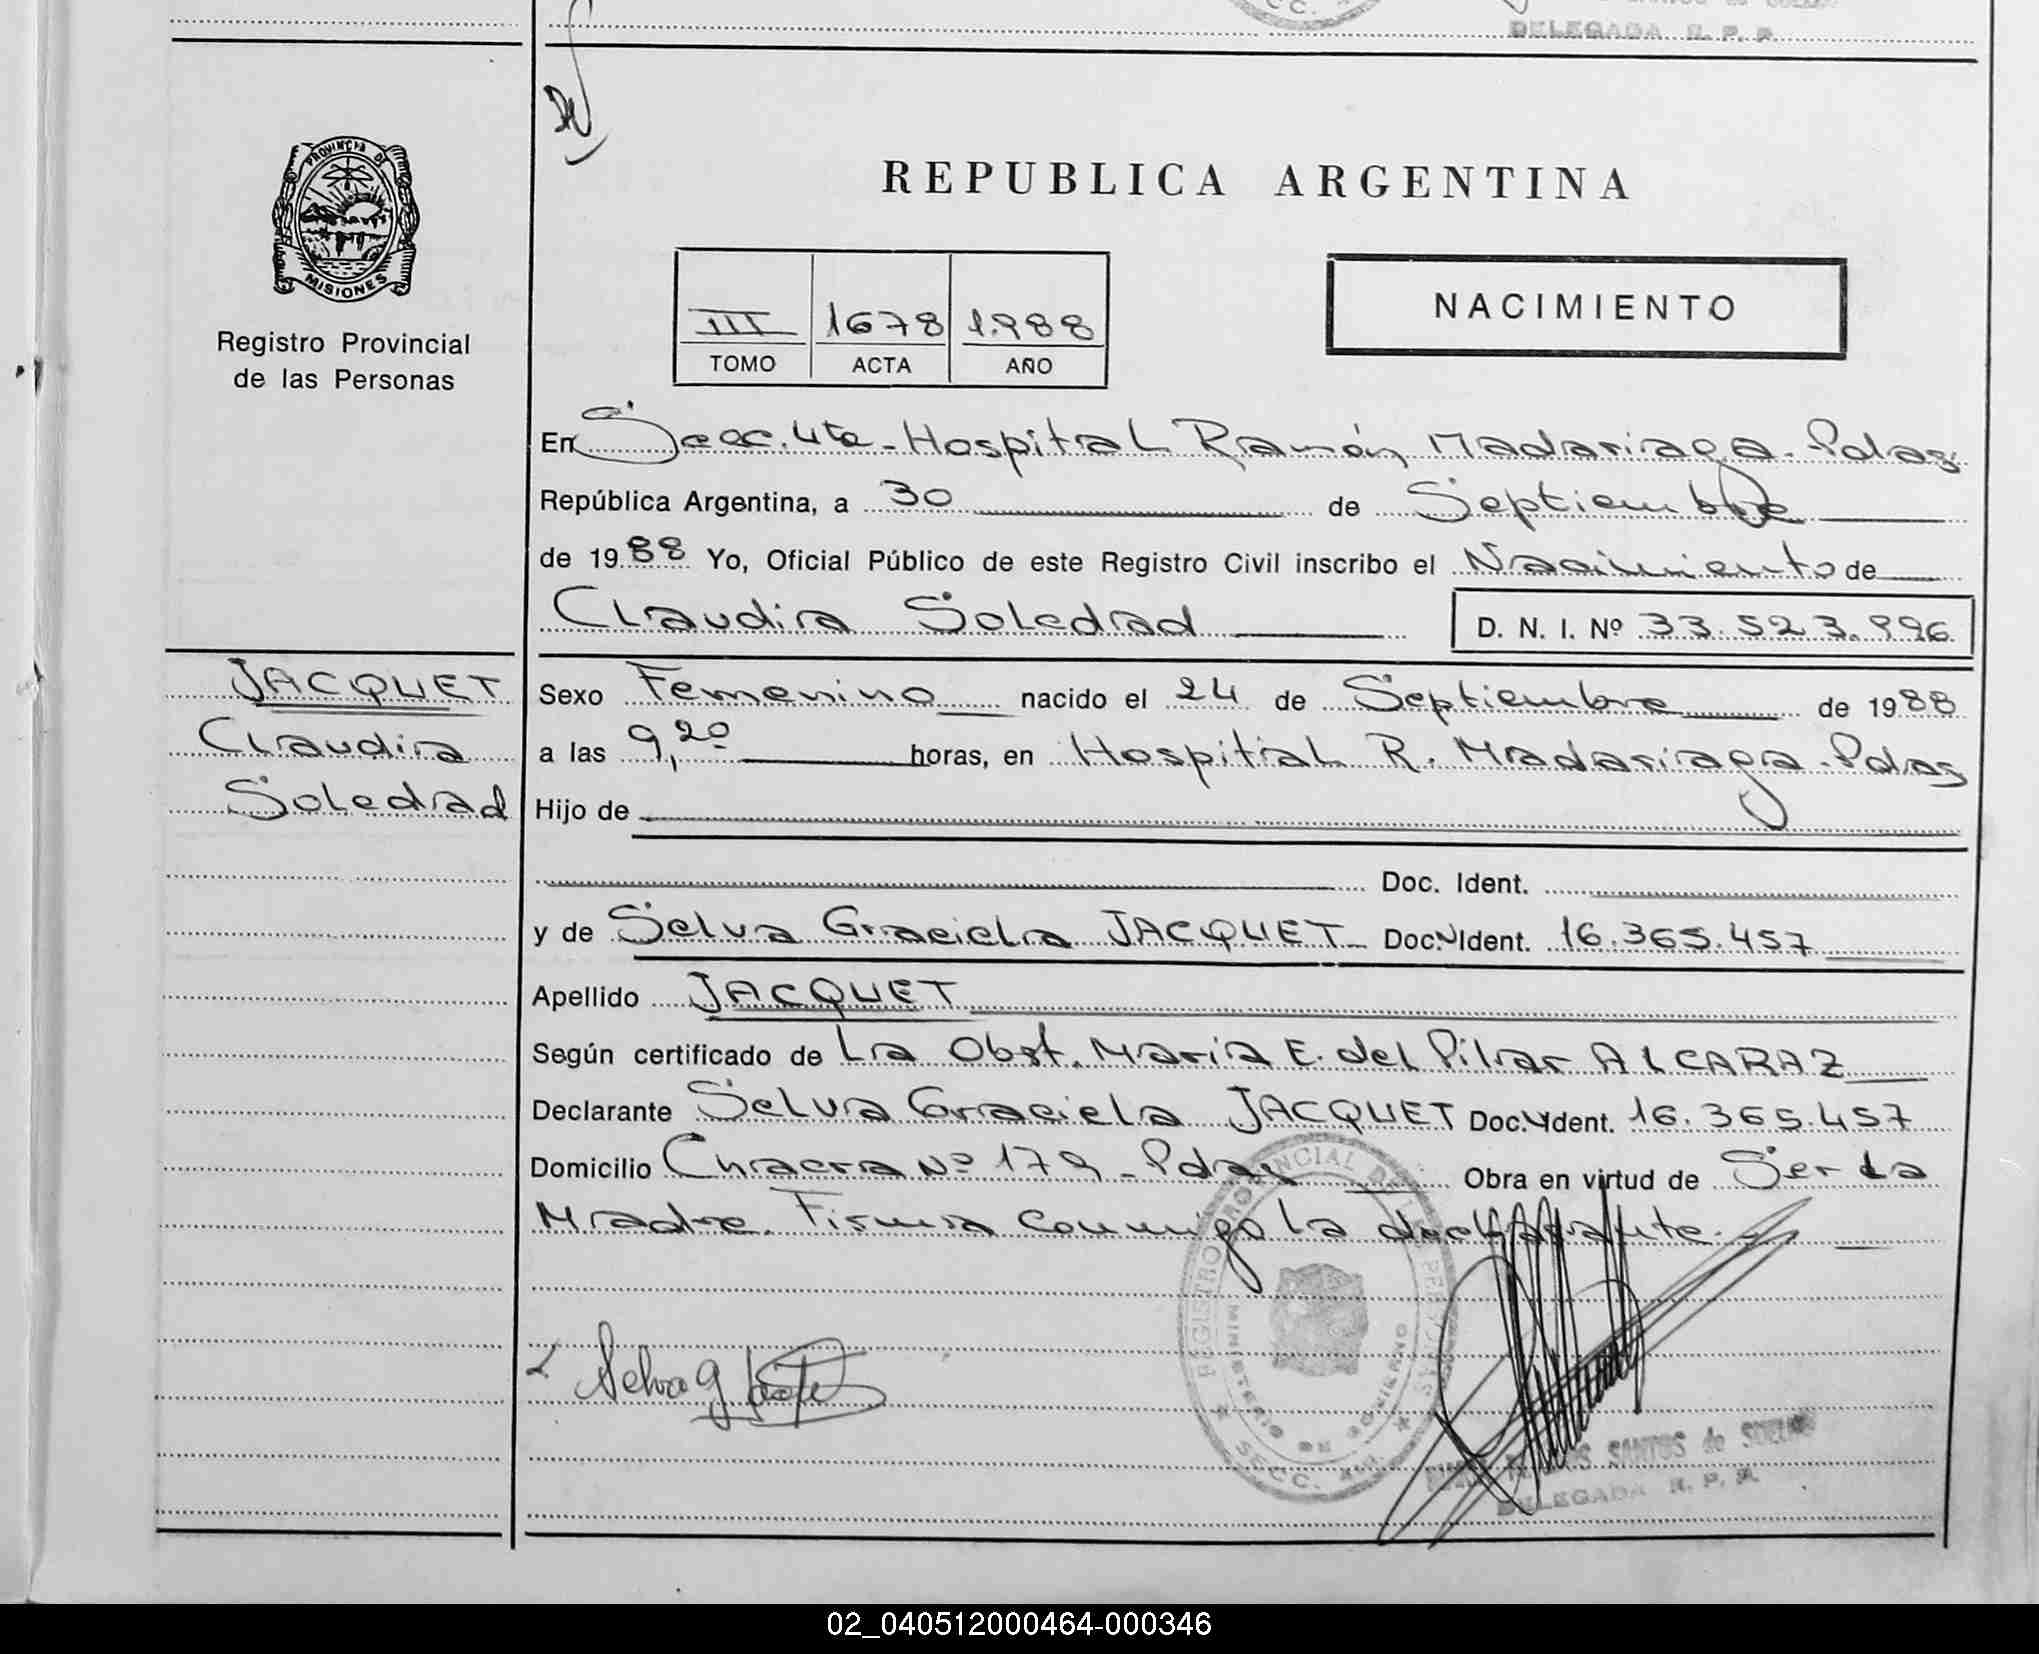 DELEGADA R. P. P.
PROVINCIA DE
MISIONES
Registro Provincial
de las Personas
REPUBLICA ARGENTINA
III 1678 1.988
TOMO ACTA AÑO
NACIMIENTO
En Secc. 4ta - Hospital Ramón Madariaga - Pdas
República Argentina, a 30 de Septiembre
de 1988 Yo, Oficial Público de este Registro Civil inscribo el Nacimiento de
Claudia Soledad D. N. I. Nº 33.523.996
JACQUET
Claudia
Soledad
Sexo Femenino nacido el 24 de Septiembre de 1988
a las 9,20 horas, en Hospital R. Madariaga - Pdas
Hijo de
Doc. Ident.
y de Selva Graciela JACQUET Doc. Ident. 16.365.457
Apellido JACQUET
Según certificado de La Obst. María E. del Pilar ALCARAZ
Declarante Selva Graciela JACQUET Doc. Ident. 16.365.457
Domicilio Chacra Nº 179 - Pdas Obra en virtud de Ser la
Madre. Firma conmigo la declarante.
REGISTRO PROVINCIAL DE LAS PERSONAS
MINISTERIO DE GOBIERNO
SECC.
Selva G
SANTOS de
DELEGADA R. P. P.
02_040512000464-000346